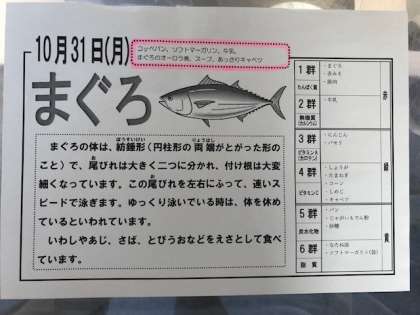 10月31日(月)
コッペパン、ソフトマーガリン、牛乳、
まぐろのオーロラ煮、スープ、あっさりキャベツ
まぐろ
まぐろの体は、紡錘形(円柱形の両端がとがった形の
ぼうすいけい
りょうはし
こと)で、尾びれは大きく二つに分かれ、付け根は大変
お
細くなっています。この尾びれを左右にふって、速いス
お
ピードで泳ぎます。ゆっくり泳いでいる時は、体を休め
ているといわれています。
いわしやあじ、さば、とびうおなどをえさとして食べ
ています。
1群
たんぱく質
・まぐろ
・赤みそ
・豚肉
2群
無機質
(カルシウム)
・牛乳
赤
3群
ビタミンA
(カロテン)
・にんじん
・パセリ
4群
ビタミンC
・しょうが
・たまねぎ
・コーン
・しめじ
・キャベツ
緑
5群
炭水化物
・パン
・じゃがいもでん粉
・砂糖
6群
脂質
・なたね油
・ソフトマーガリン
黄